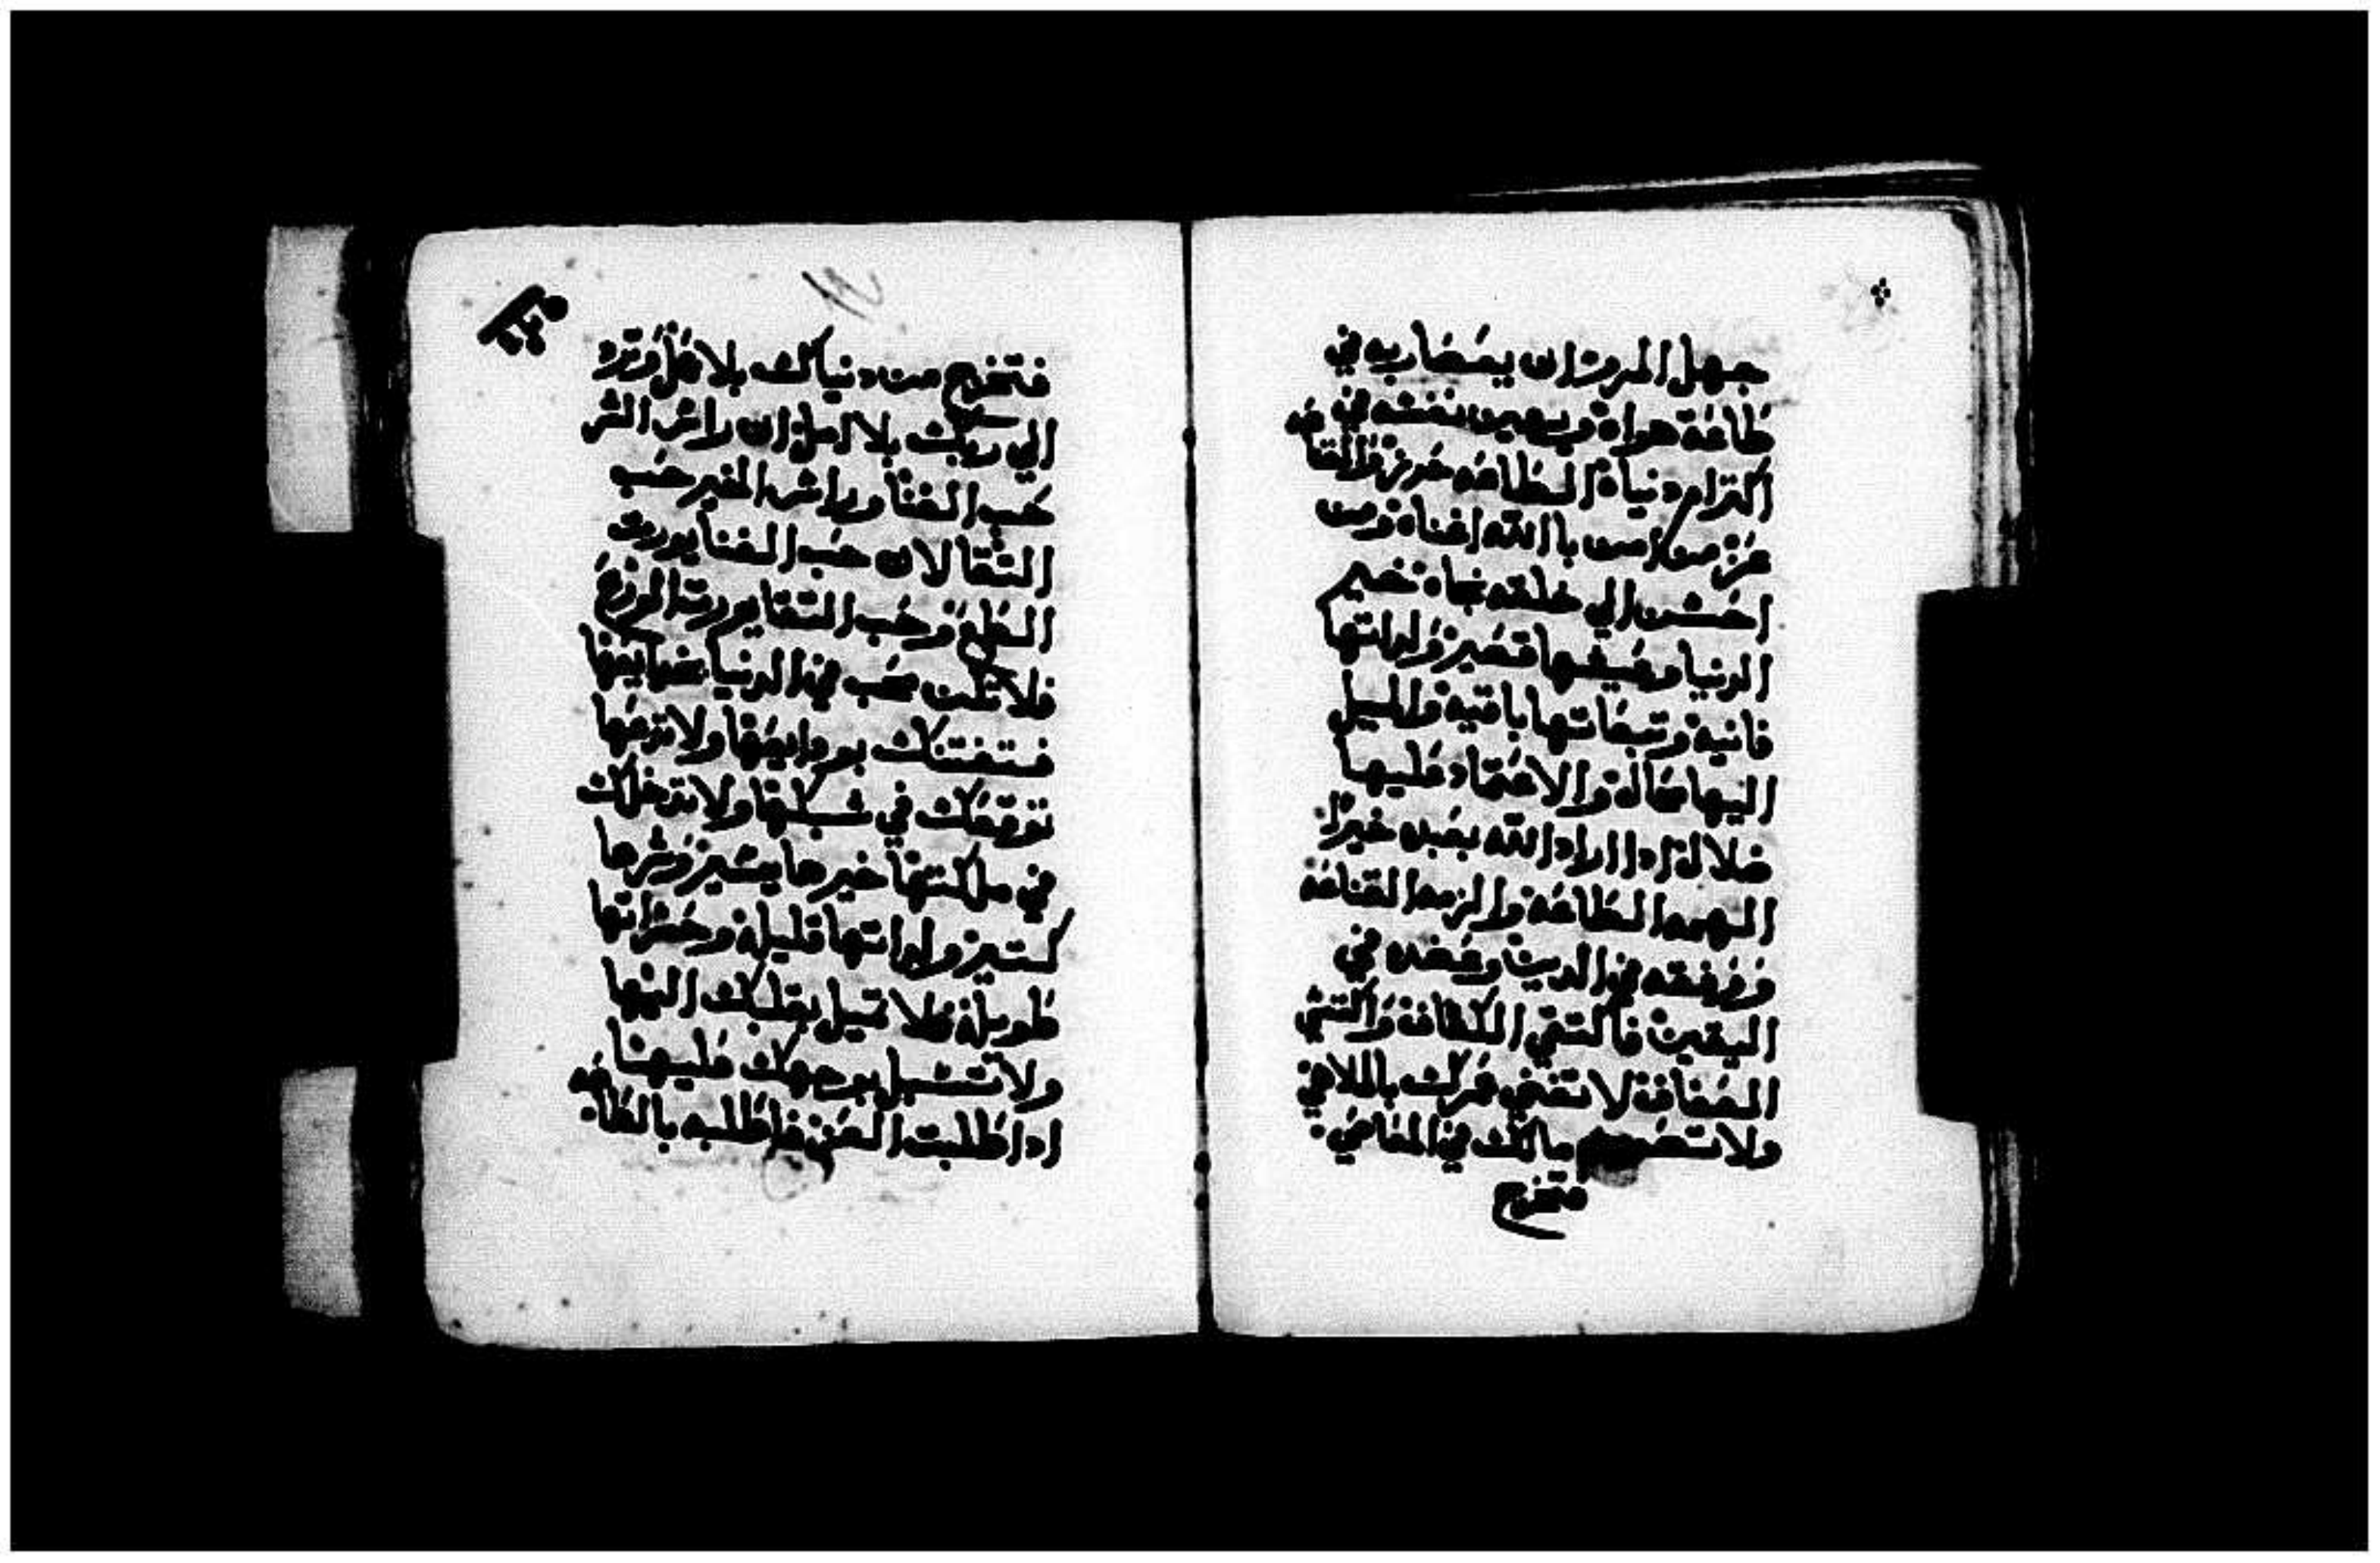 جهل المرو ان يعصا ربه في
طاعة هواه ويهين نفسه في
اكترام دنياه الطاعه حرز والقناعه
عز من امن باالله اغناه ومن
احسن الي خلقه نجاه خير
الدنيا وعيشها قصير ولداتها
فانيه وتبعاتها باقيه والميل
اليها محاله والاعتماد عليها
ضلاله ادا اراد الله بعبده خيرا
الهمه الطاعه والزمه القناعه
وفقهه في الدين وعضده في
اليقين فاكتفي الكفاف واكتسي
العفاف لا تفني عمرك بالملاهي
ولا تضيع مالك في المعاصي
فتخرج
فتخرج من دنياك بلا عمل وترد
الي ربك بلا امل ان راس الشر
حب الغنا وراس الخير حب
التقا لان حب الغنا يورت
الطمع وحب التقا يورت الورع
فلا تكن محب في الدنيا
فتفتنك بودايعها ولا تدعها
توقعك في شبكتها ولا تدخلك
في ملكتها خيرها يسير وشرها
كتير ولداتها قليله وحسراتها
طويله فلا تميل بقلبك اليها
ولا تقبل بوجهك عليها
ادا طلبت العز فاطلبه بالطاعه